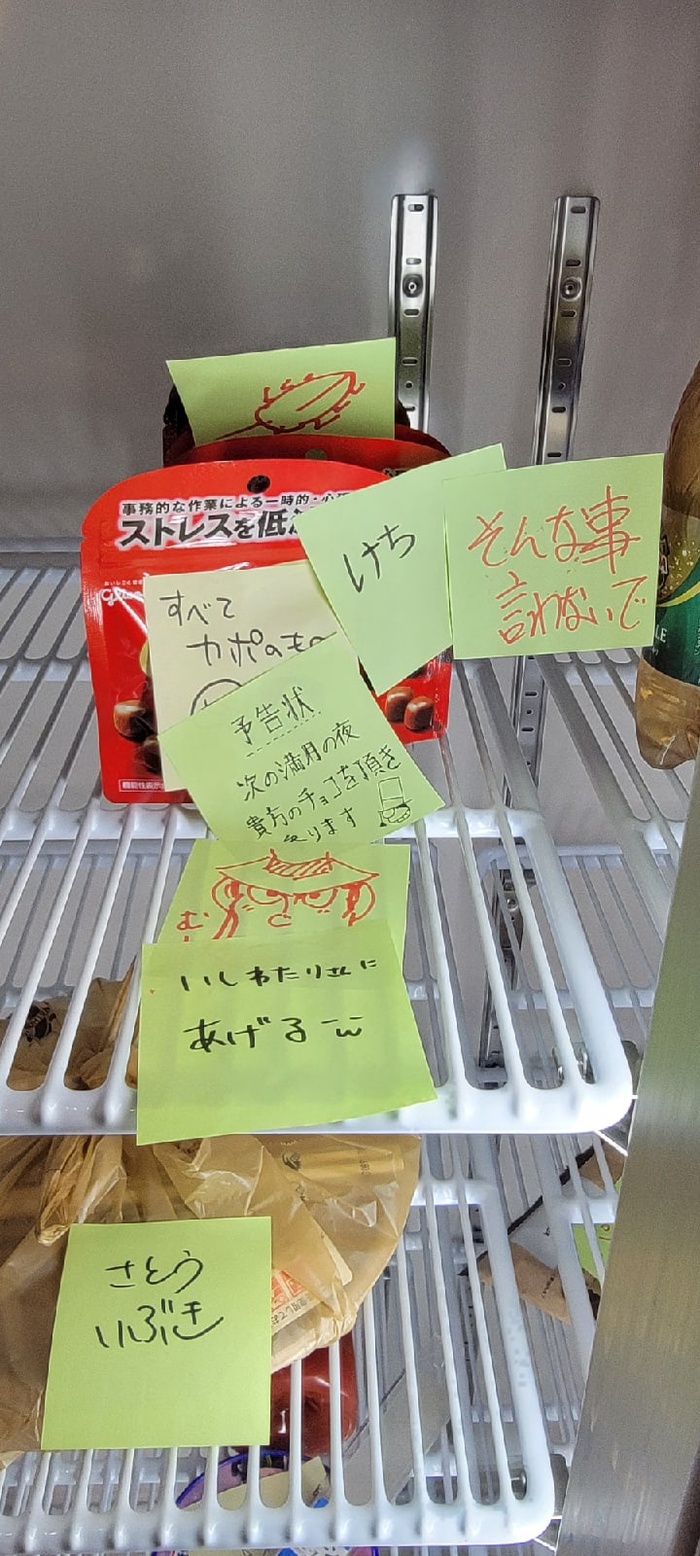 事務的な作業による一時的・心
ストレスを低
すべて
カポのもの
けち
そんな事
言わないで
予告状
次の満月の夜
貴方のチョコを頂き
参ります
む
いしわたりさんに
あげる
さとう
いぶき